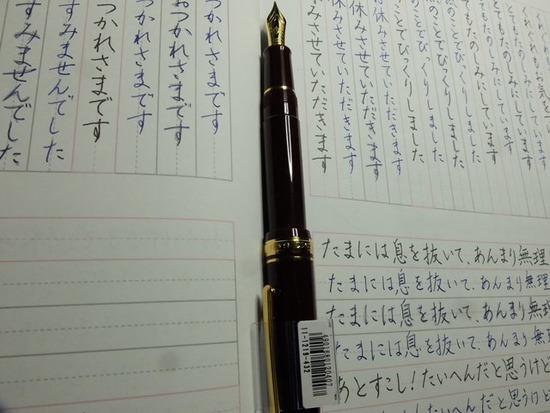 とてもたのしみにしています
とてもたのしみにしています
とてもたのしみにしています
のことでびっくりしました
ことでびっくりしました
ことでびっくりしました
お休みさせていただきます
休みさせていただきます
休みさせていただきます
みさせていただきます
たまには息を抜いて、あんまり無理
たまには息を抜いて、あんまり無理
たまには息を抜いて、あんまり無理
たまには息を抜いて、あんまり無理
あとすこし!たいへんだと思うけど
つかれさまです
おつかれさまです
つかれさまです
つかれさまです
すみませんでした
すみませんでした
11-1219-432